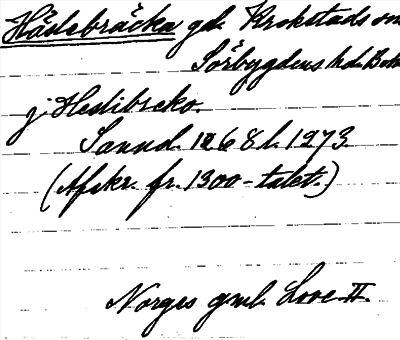 Håslebräcka gd. Krokstads sn
Sörbygdens hd. Boh
j Heslibreko.
Sannd. 1268 l. 1273.
(Afskr. fr. 1300-talet.)
Norges gml. Love II.